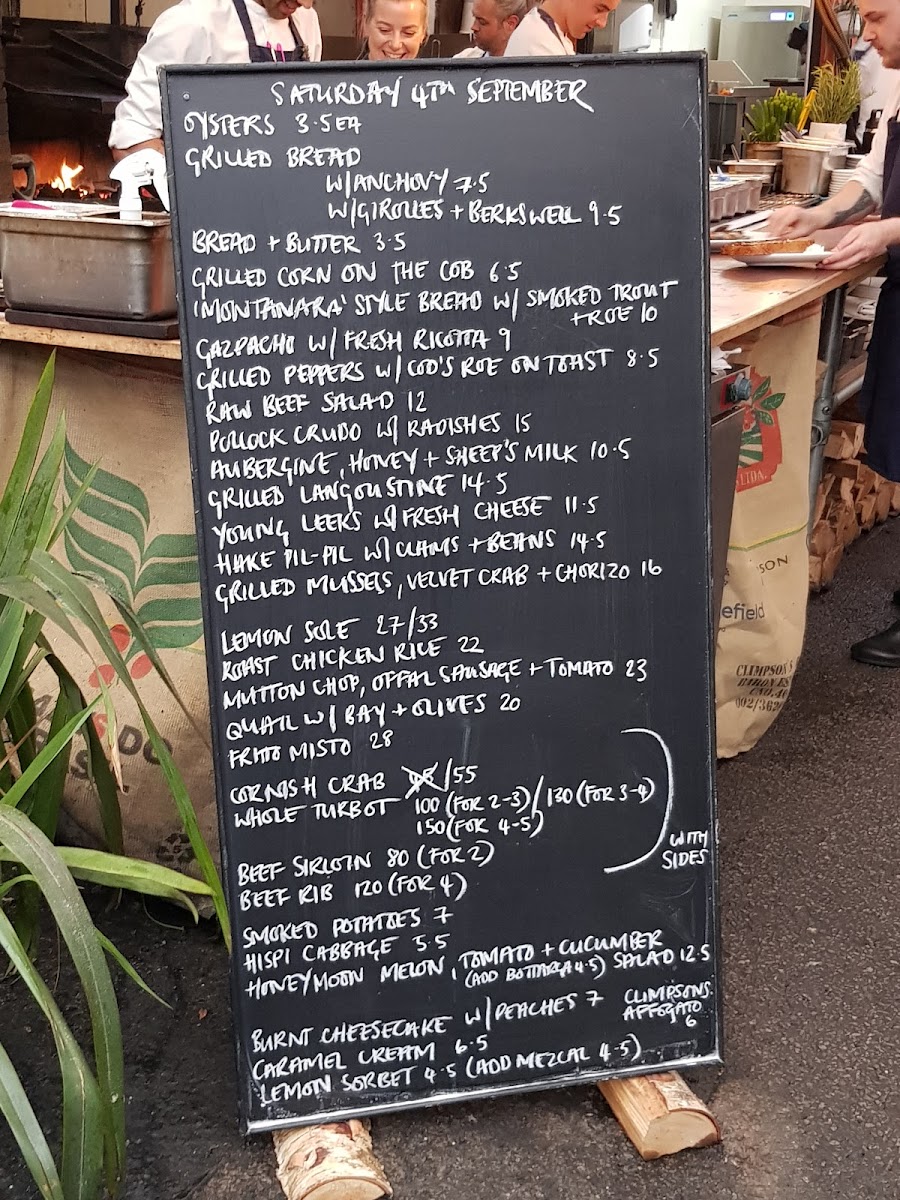 SATURDAY 4TH SEPTEMBER
OYSTERS 3.5EA
GRILLED BREAD
W/ANCHOVY 7.5
W/GIROLLES + BERKSWELL 9.5
BREAD + BUTTER 3.5
GRILLED CORN ON THE COB 6.5
'MONTANARA' STYLE BREAD W/ SMOKED TROUT
+ ROE 10
GAZPACHO W/ FRESH RICOTTA 9
GRILLED PEPPERS W/ COD'S ROE ON TOAST 8.5
RAW BEEF SALAD 12
POLLOCK CRUDO W/ RADISHES 15
AUBERGINE, HONEY + SHEEP'S MILK 10.5
GRILLED LANGOUSTINE 14.5
YOUNG LEEKS W/ FRESH CHEESE 11.5
HAKE PIL-PIL W/ CLAMS + BEANS 14.5
GRILLED MUSSELS, VELVET CRAB + CHORIZO 16
LEMON SOLE 27/33
ROAST CHICKEN RICE 22
MUTTON CHOP, OFFAL SAUSAGE + TOMATO 23
QUAIL W/ BAY + OLIVES 20
FRITO MISTO 28
CORNISH CRAB 45/55
WHOLE TURBOT 100 (FOR 2-3)/130 (FOR 3-4)
150 (FOR 4-5)
WITH
SIDES
BEEF SIRLOIN 80 (FOR 2)
BEEF RIB 120 (FOR 4)
SMOKED POTATOES 7
HISPI CABBAGE 5.5
HONEYMOON MELON, TOMATO + CUCUMBER
(ADD BOTTARGA 4.5) SALAD 12.5
BURNT CHEESECAKE W/PEACHES 7
CLIMPSONS
AFFOGATO
6
CARAMEL CREAM 6.5
LEMON SORBET 4.5 (ADD MEZCAL 4.5)
LTDA.
SON
efield
CLIMPSON